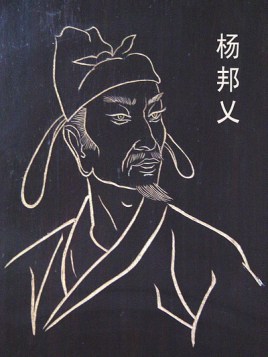 杨邦乂